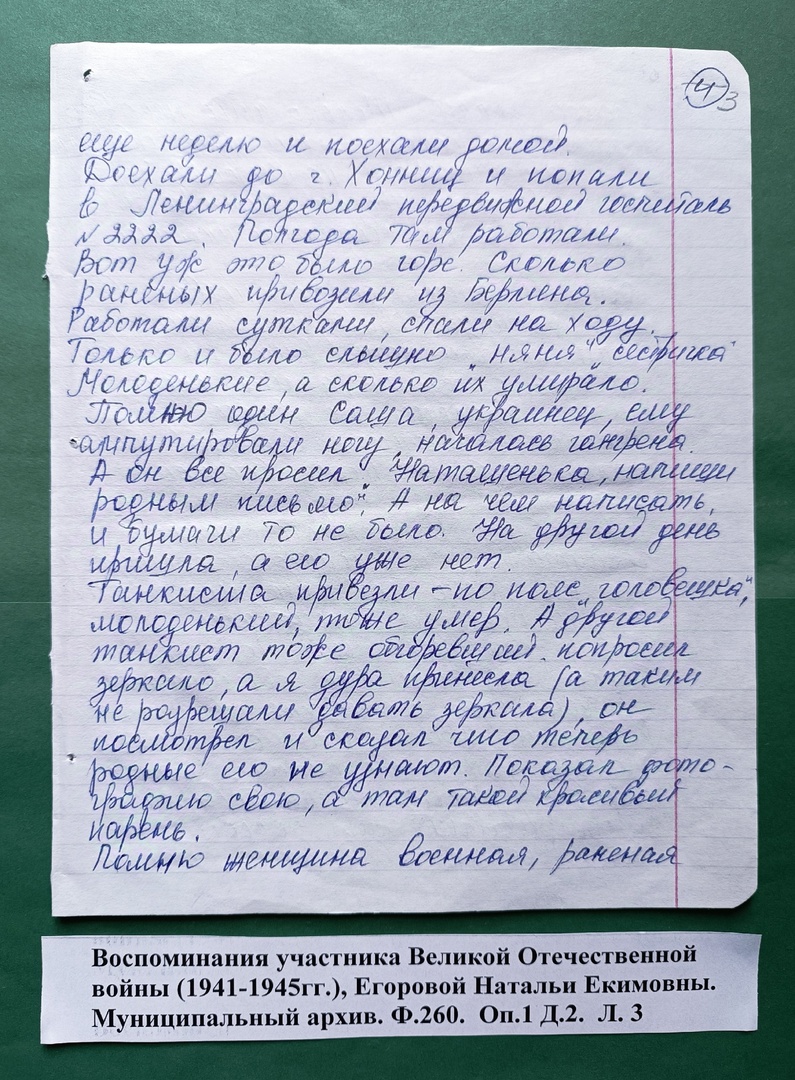 4 3
еще неделю и поехали домой.
Доехали до г. Хонниц и попали
в Ленинградский передвижной госпиталь
№2222. Полгода там работали.
Вот уж это было горе. Сколько
раненых привозили из Берлина.
Работали сутками, спали на ходу.
Только и было слышно „няня" „сестричка"
Молоденькие, а сколько их умирало.
Помню один Саша, украинец, ему
ампутировали ногу, началась гангрена.
А он все просил „Наташенька, напиши
родным письмо". А на чем написать,
и бумаги то не было. На другой день
пришла, а его уже нет.
Танкиста привезли – по пояс „головешка",
молоденький, тоже умер. А другой
танкист тоже обгоревший попросил
зеркало, а я дура принесла (а таким
не розрешали давать зеркала), он
посмотрел и сказал что теперь
родные его не узнают. Показал фото-
графию свою, а там такой красивый
парень.
Помню женщина военная, раненая
Воспоминания участника Великой Отечественной
войны (1941-1945гг.), Егоровой Натальи Екимовны.
Муниципальный архив. Ф.260. Оп.1 Д.2. Л. 3